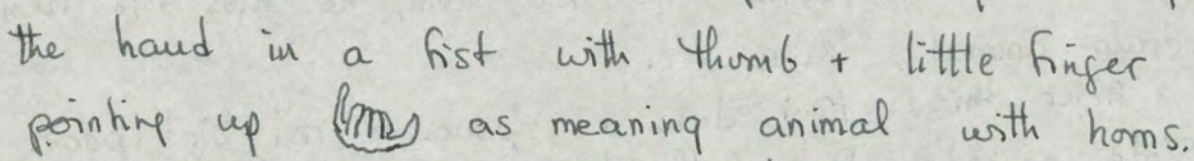 the hand in a fist with thumb + little finger
pointing up as meaning animal with horns.